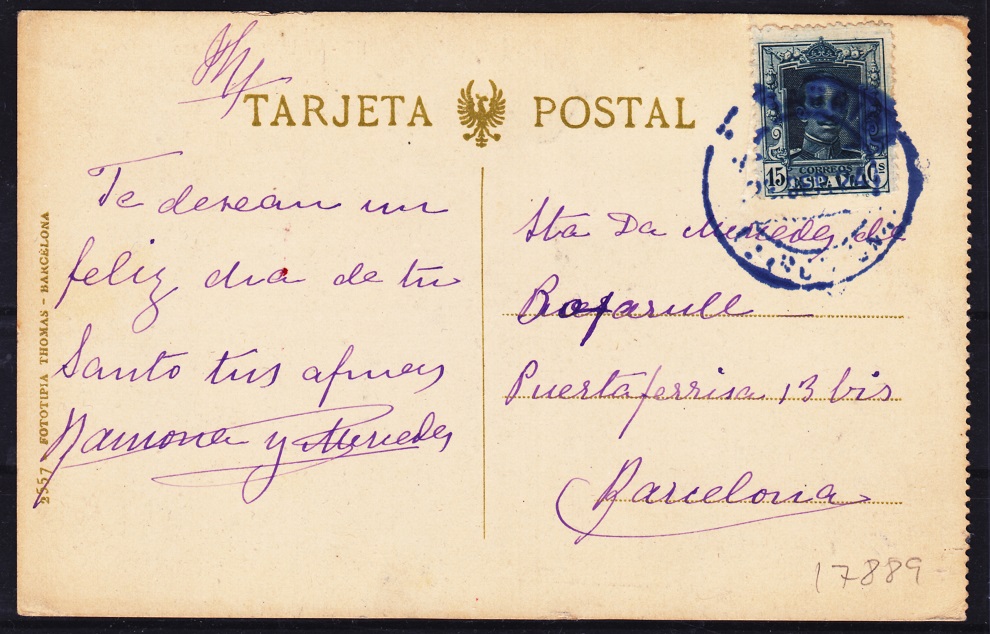 TARJETA POSTAL
Te desean un
feliz dia de tu
Santo tus afmas
Ramona y Mercedes
2557 FOTOTIPIA THOMAS - BARCELONA
15 Cs
CORREOS
ESPAÑA
Sta Da Mercedes de
Bofarull —
Puertaferrisa 13 bis
Barcelona
17889